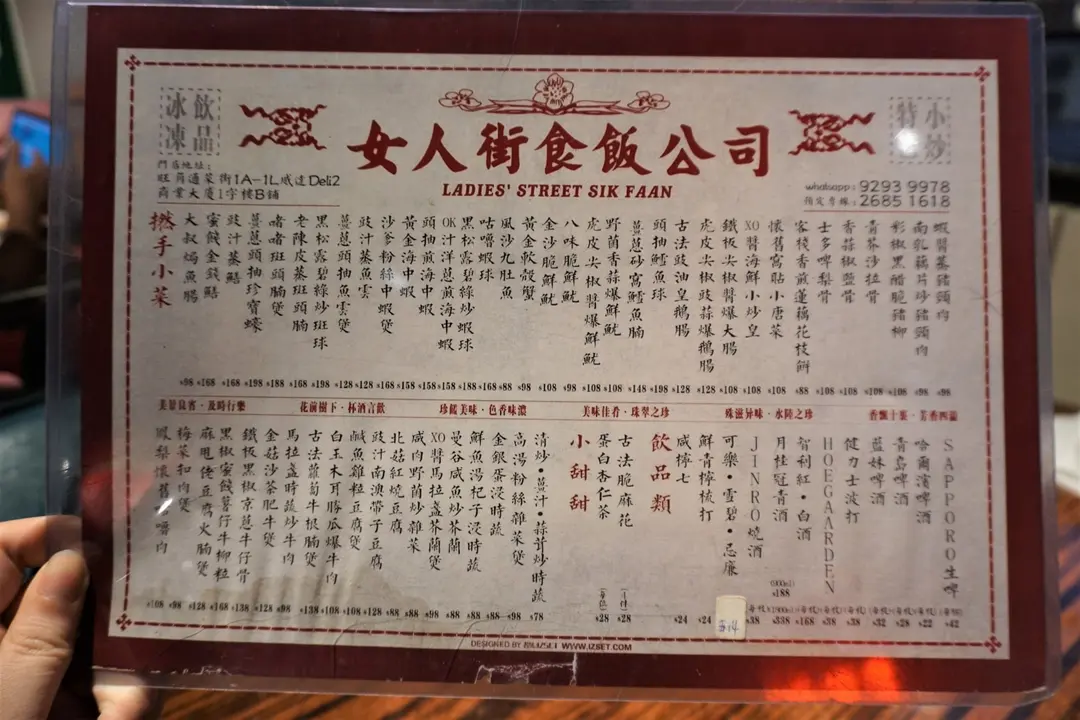 冰凍
飲品
女人街食飯公司
LADIES' STREET SIK FAAN
小炒
門店地址:
旺角通菜街1A-1L威達Deli2
商業大廈1字樓B鋪
whatsapp: 9293 9978
預定專線: 2685 1618
撚手小菜
大叔焗魚腸
蜜餞金錢鱔
豉汁蒸鱔
薑蔥頭抽珍寶蠔
啫啫斑頭腩煲
老陳皮蒸斑頭腩
黑松露碧綠炒斑球
薑蔥頭抽魚雲煲
豉汁蒸魚雲
沙爹粉絲中蝦煲
黃金海中蝦
頭抽煎海中蝦
OK汁洋蔥煎海中蝦
黑松露碧綠炒蝦球
咕嚕蝦球
風沙九肚魚
黃金軟殼蟹
金沙脆鮮魷
八味脆鮮魷
虎皮尖椒醬爆鮮魷
野菌香蒜爆鮮魷
薑蔥砂窩鱈魚腩
頭抽鱈魚球
古法豉油皇鵝腸
虎皮尖椒豉蒜爆鵝腸
鐵板尖椒醬爆大腸
XO醬海鮮小炒皇
懷舊窩貼小唐菜
客棧香煎蓮藕花枝餅
士多啤梨骨
香蒜椒鹽骨
青芥沙拉骨
彩椒黑醋脆豬柳
南乳藕片炒豬頸肉
蝦醬蒸豬頸肉
$98 $168 $168 $198 $188 $168 $198 $128 $128 $168 $158 $158 $158 $188 $168 $88 $98 $108 $98 $108 $108 $148 $198 $128 $128 $108 $108 $108 $88 $108 $108 $108 $108 $98 $98
美景良宵·及時行樂
花前樹下·杯酒言歡
珍餚美味·色香味濃
美味佳肴·珠翠之珍
殊滋异味·水陸之珍
香飄十裏·芳香四溢
鳳梨懷舊咕嚕肉
梅菜扣肉煲
麻甩佬豆腐火腩煲
黑椒蜜餞薯仔牛柳粒
鐵板黑椒京蔥牛仔骨
金菇沙茶肥牛煲
馬拉盞時蔬炒牛肉
古法蘿蔔牛根腩煲
白玉木耳勝瓜爆牛肉
鹹魚雞粒豆腐煲
豉汁南澳帶子豆腐
北菇紅燒豆腐
咸肉野菌炒雜菜
XO醬馬拉盞芥蘭煲
曼谷咸魚炒芥蘭
鮮魚湯杞子浸時蔬
金銀蛋浸時蔬
高湯粉絲雜菜煲
清炒·薑汁·蒜茸炒時蔬
小甜甜
蛋白杏仁茶
古法脆麻花
飲品類
咸檸七
鮮青檸梳打
可樂·雪碧·忌廉
JINRO燒酒
月桂冠青酒
智利紅·白酒
HOEGAARDEN
健力士波打
藍妹啤酒
青島啤酒
哈爾濱啤酒
SAPPORO生啤
(900ml)
$188
$108 $98 $128 $168 $138 $128 $98 $138 $108 $108 $128 $88 $98 $88 $88 $88 $98 $98 $78 $28 $28 $24 $24 $14 $38 $338 $168 $38 $38 $32 $28 $22 $42
DESIGNED BY WWW.IZSET.COM